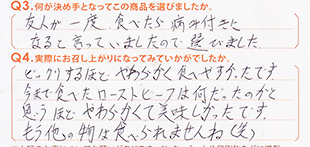 Q3.何が決め手となってこの商品を選びましたか。
友人が一度食べたら病み付きに
なると言っていましたので選びました
Q4.実際にお召し上がりになってみていかがでしたか。
ビックリするほどやわらかく食べやすかったです
今まで食べたローストビーフは何だったのかと
思うほどやわらかくて美味しかったです。
もう他の物は食べられませんね(笑)